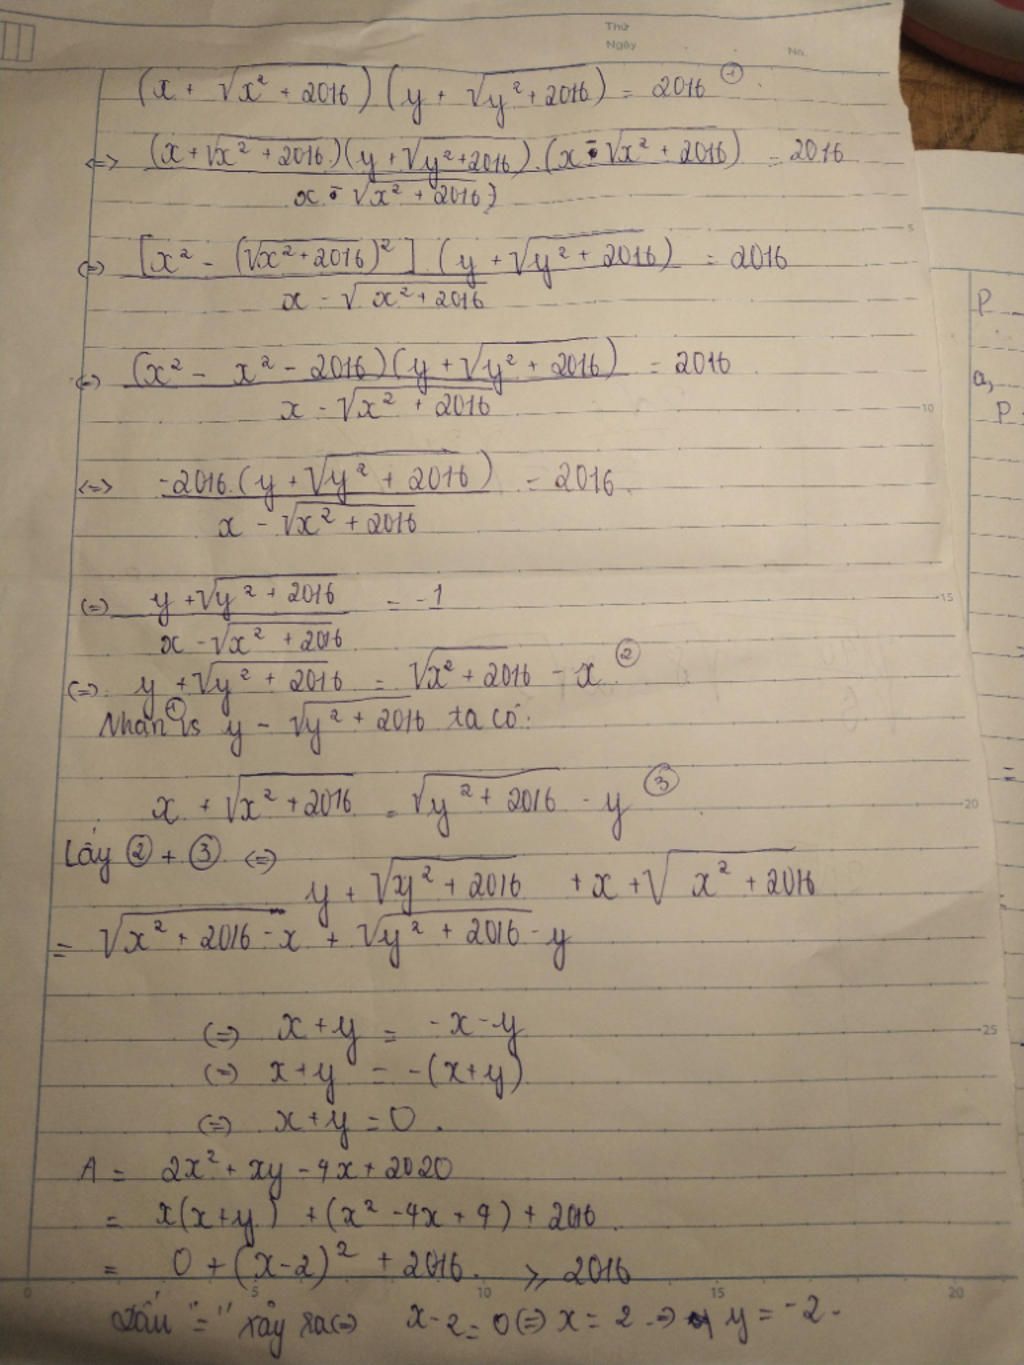 Thứ
Ngày
No.
(x + √x² + 2016) (y + √y² + 2016) = 2016 ①.
<=> (x + √x² + 2016)(y + √y² + 2016).(x - √x² + 2016) = 2016
x - √x² + 2016)
<=> [x² - (√x² + 2016)²] (y + √y² + 2016) = 2016
x - √x² + 2016
<=> (x² - x² - 2016)(y + √y² + 2016) = 2016
x - √x² + 2016
<=> -2016.(y + √y² + 2016) = 2016.
x - √x² + 2016
<=> y + √y² + 2016 = -1
x - √x² + 2016
<=> y + √y² + 2016 = √x² + 2016 - x ②
Nhân ① vs y - √y² + 2016 ta có:
x + √x² + 2016 = √y² + 2016 - y ③
Lấy ② + ③ <=>
y + √y² + 2016 + x + √x² + 2016
= √x² + 2016 - x + √y² + 2016 - y
<=> x + y = -x - y
<=> x + y = -(x + y)
<=> x + y = 0.
A = 2x² + xy - 4x + 2020
= x(x + y) + (x² - 4x + 4) + 2016.
= 0 + (x - 2)² + 2016. ≥ 2016
Dấu "=" xảy ra <=> x - 2 = 0 <=> x = 2 => y = -2.
P
a,
P
5
10
15
20
25
0
5
10
15
20